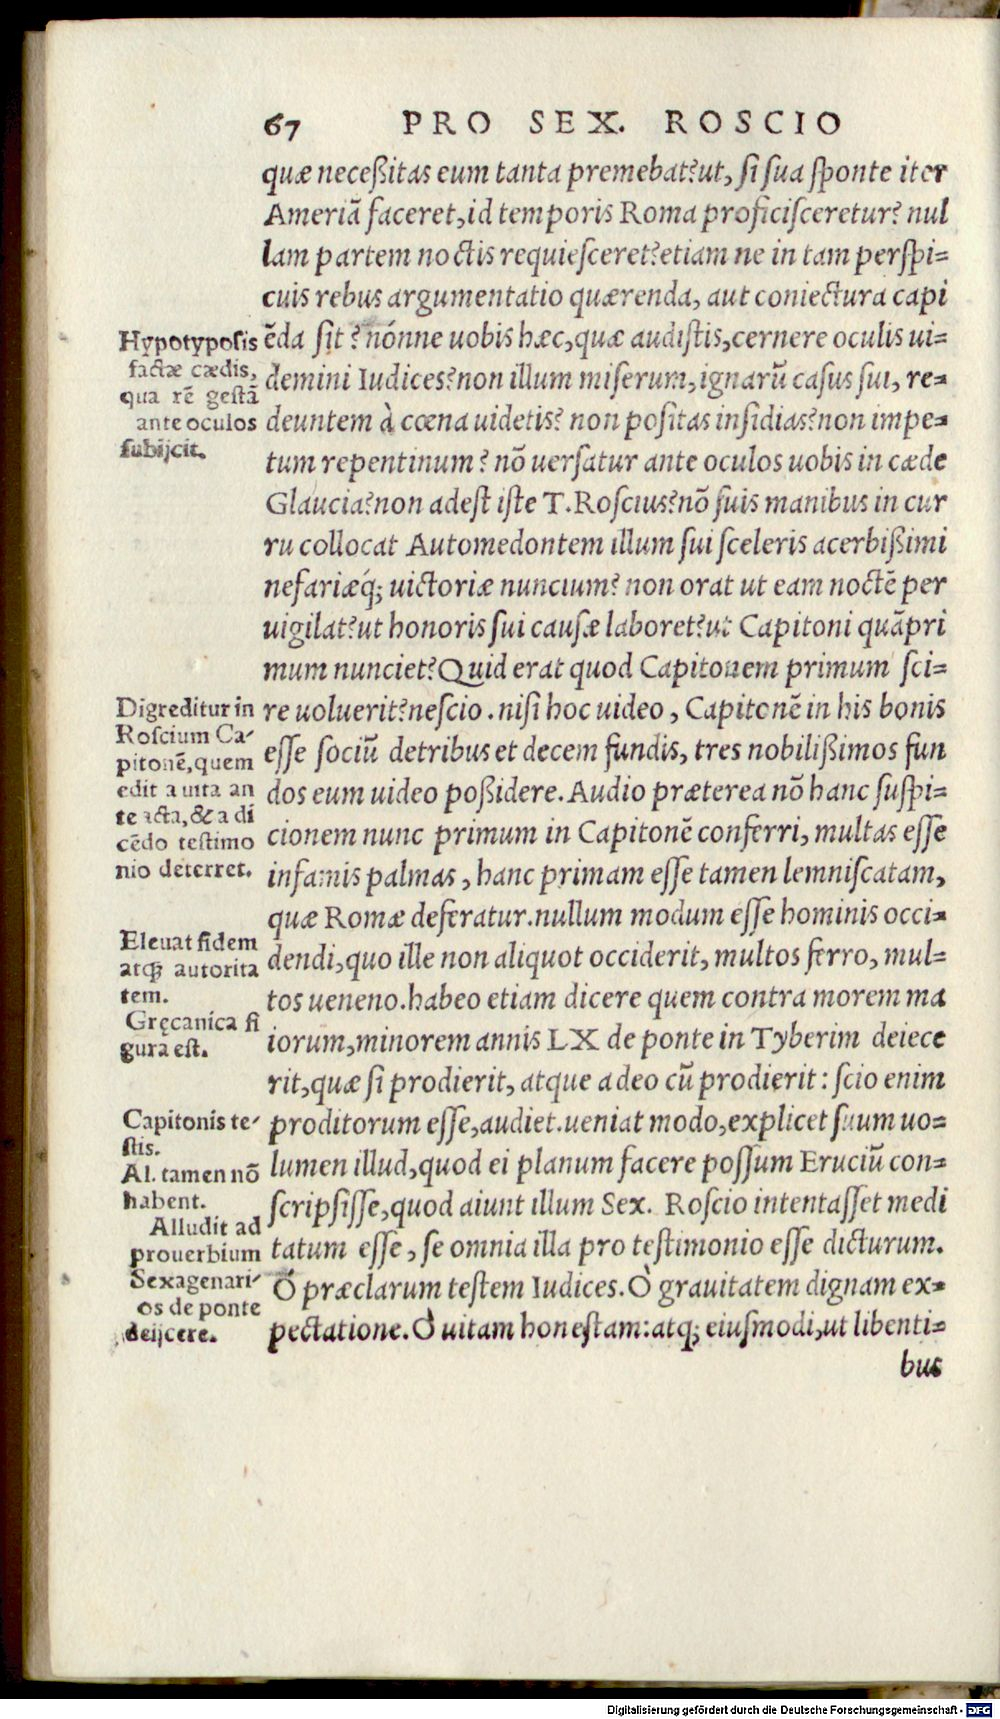 67 PRO SEX. ROSCIO
quæ neceßitas eum tanta premebat? ut, si sua sponte iter
Ameriã faceret, id temporis Roma proficisceretur? nul
lam partem noctis requiesceret? etiam ne in tam perspi=
cuis rebus argumentatio quærenda, aut coniectura capi
ẽda sit? nónne uobis hæc, quæ audistis, cernere oculis ui=
demini Iudices? non illum miserum, ignarũ casus sui, re=
deuntem à cœna uidetis? non positas insidias? non impe=
tum repentinum? nõ uersatur ante oculos uobis in cæde
Glaucia? non adest iste T. Roscius? nõ suis manibus in cur
ru collocat Automedontem illum sui sceleris acerbißimi
nefariæq́; uictoriæ nuncium? non orat ut eam noctẽ per
uigilat? ut honoris sui causæ laboret? ut Capitoni quãpri
mum nunciet? Quid erat quod Capitonem primum sci=
re uoluerit? nescio. nisi hoc uideo, Capitonẽ in his bonis
esse sociũ detribus et decem fundis, tres nobilißimos fun
dos eum uideo poßidere. Audio præterea nõ hanc suspi=
cionem nunc primum in Capitonẽ conferri, multas esse
infamis palmas, hanc primam esse tamen lemniscatam,
quæ Romæ deferatur. nullum modum esse hominis occi=
dendi, quo ille non aliquot occiderit, multos ferro, mul=
tos ueneno. habeo etiam dicere quem contra morem ma
iorum, minorem annis LX de ponte in Tyberim deiece
rit, quæ si prodierit, atque adeo cũ prodierit: scio enim
proditorum esse, audiet. ueniat modo, explicet suum uo=
lumen illud, quod ei planum facere possum Eruciũ con=
scripsisse, quod aiunt illum Sex. Roscio intentasset medi
tatum esse, se omnia illa pro testimonio esse dicturum.
Ô præclarum testem Iudices. Ò grauitatem dignam ex=
pectatione. Ò uitam honestam: atq; eiusmodi, ut libenti=
bus
Hypotyposis
factæ cædis,
qua rẽ gestã
ante oculos
subijcit.
Digreditur in
Roscium Ca-
pitonẽ, quem
edit a uita an
te acta, & a di
cẽdo testimo
nio deterret.
Eleuat fidem
atq; autorita
tem.
Gręcanica fi
gura est.
Capitonis te-
stis.
Al. tamen nõ
habent.
Alludit ad
prouerbium
Sexagenari-
os de ponte
deijcere.
Digitalisierung gefördert durch die Deutsche Forschungsgemeinschaft - DFG